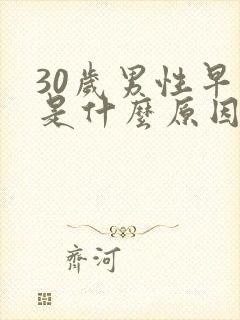 30歲男性早
是什麼原因
齊河